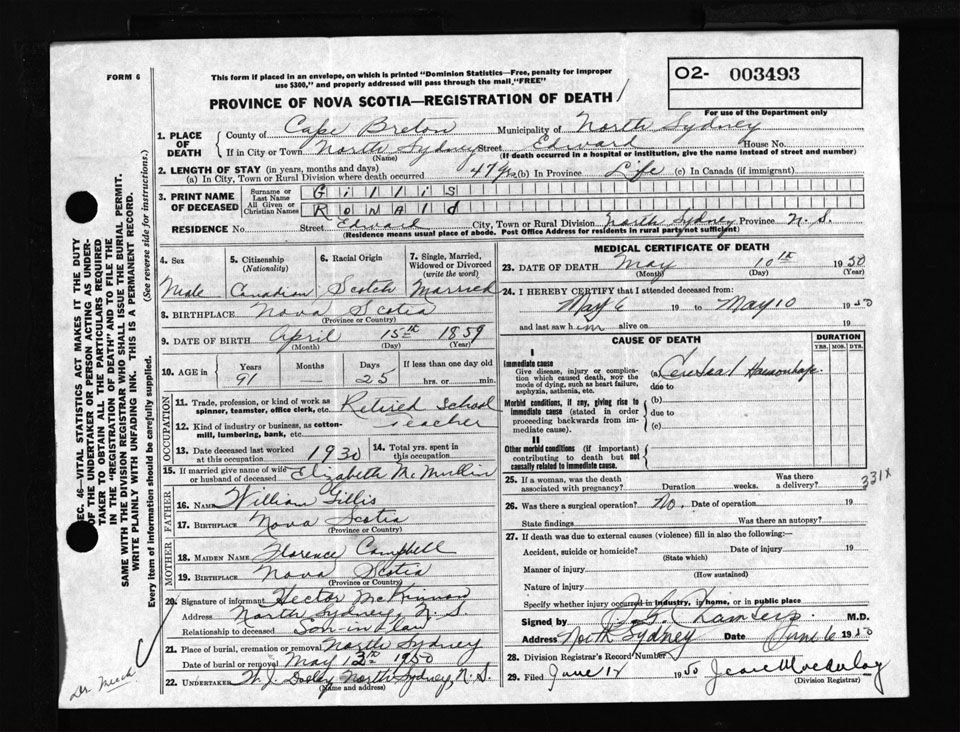 FORM 6
This form if placed in an envelope, on which is printed "Dominion Statistics—Free, penalty for improper
use $300," and properly addressed will pass through the mail "FREE"
O2- 003493
For use of the Department only
PROVINCE OF NOVA SCOTIA—REGISTRATION OF DEATH
1. PLACE OF DEATH
County of Cape Breton Municipality of North Sydney
If in City or Town North Sydney Street Edward House No.
(Name) (If death occurred in a hospital or institution, give the name instead of street and number)
2. LENGTH OF STAY (in years, months and days)
(a) In City, Town or Rural Division where death occurred 47 yrs (b) In Province Life (c) In Canada (if immigrant)
3. PRINT NAME OF DECEASED
Surname or Last Name Gillis
All Given or Christian Names Ronald
RESIDENCE No. Street Edward City, Town or Rural Division North Sydney Province N.S.
(Residence means usual place of abode. Post Office Address for residents in rural parts not sufficient)
4. Sex 5. Citizenship (Nationality) 6. Racial Origin 7. Single, Married, Widowed or Divorced (write the word)
Male Canadian Scotch Married
8. BIRTHPLACE Nova Scotia
(Province or Country)
9. DATE OF BIRTH April 15th 1859
(Month) (Day) (Year)
10. AGE in Years Months Days If less than one day old
91 25 hrs. or min.
OCCUPATION
11. Trade, profession, or kind of work as spinner, teamster, office clerk, etc. Retired School
Teacher
12. Kind of industry or business, as cotton-mill, lumbering, bank, etc.
13. Date deceased last worked at this occupation 1930 14. Total yrs. spent in this occupation
15. If married give name of wife or husband of deceased Elizabeth McMullin
FATHER
16. Name William Gillis
17. BIRTHPLACE Nova Scotia
(Province or Country)
MOTHER
18. MAIDEN NAME Florence Campbell
19. BIRTHPLACE Nova Scotia
(Province or Country)
20. Signature of informant Hector McKinnon
Address North Sydney, N.S.
Relationship to deceased Son-in-law
21. Place of burial, cremation or removal North Sydney
Date of burial or removal May 1950
22. UNDERTAKER Dooley North Sydney, N.S.
(Name and address)
MEDICAL CERTIFICATE OF DEATH
23. DATE OF DEATH May 10th 1950
(Month) (Day) (Year)
24. I HEREBY CERTIFY that I attended deceased from:
May 6 19 to May 10 1950
and last saw him alive on 19
CAUSE OF DEATH DURATION
YRS. MOS. DYS.
I
Immediate cause
Give disease, injury or complication which caused death, not the mode of dying, such as heart failure, asphyxia, asthenia, etc.
(a) Cerebral Haemorrhage
due to
Morbid conditions, if any, giving rise to immediate cause (stated in order proceeding backwards from immediate cause).
(b)
due to
(c)
II
Other morbid conditions (if important) contributing to death but not causally related to immediate cause.
25. If a woman, was the death associated with pregnancy? Duration weeks. Was there a delivery?
331X
26. Was there a surgical operation? No. Date of operation 19
State findings Was there an autopsy?
27. If death was due to external causes (violence) fill in also the following:—
Accident, suicide or homicide? Date of injury 19
(State which)
Manner of injury
(How sustained)
Nature of injury
Specify whether injury occurred in industry, in home, or in public place
Signed by M.D.
Address North Sydney Date June 6 1950
28. Division Registrar's Record Number
29. Filed June 12 1950
(Division Registrar)
SEC. 46—VITAL STATISTICS ACT MAKES IT THE DUTY
OF THE UNDERTAKER OR PERSON ACTING AS UNDER-
TAKER TO OBTAIN ALL THE PARTICULARS REQUIRED
IN THE "REGISTRATION OF DEATH" AND TO FILE THE
SAME WITH THE DIVISION REGISTRAR WHO SHALL ISSUE THE BURIAL PERMIT.
WRITE PLAINLY WITH UNFADING INK. THIS IS A PERMANENT RECORD.
Every item of information should be carefully supplied. (See reverse side for instructions.)